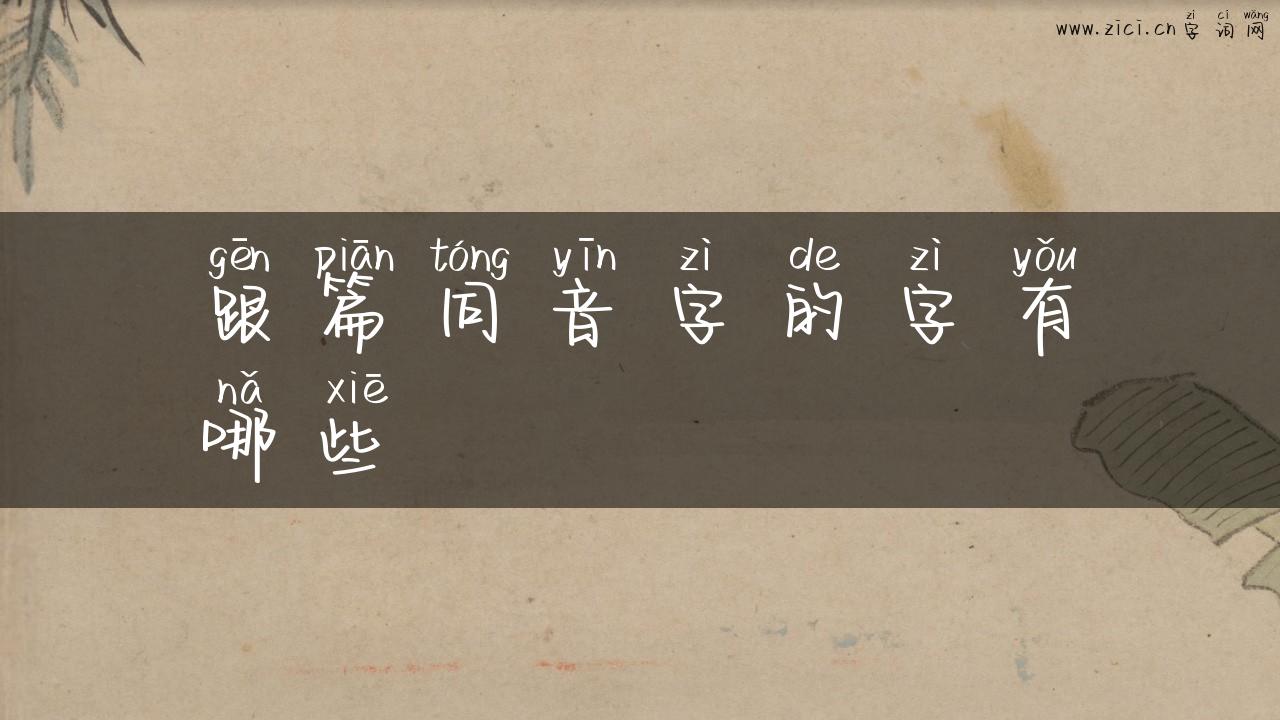 zì cí wǎng
www.zici.cn 字词网
gēn piān tóng yīn zì de zì yǒu
跟篇同音字的字有
nǎ xiē
哪些